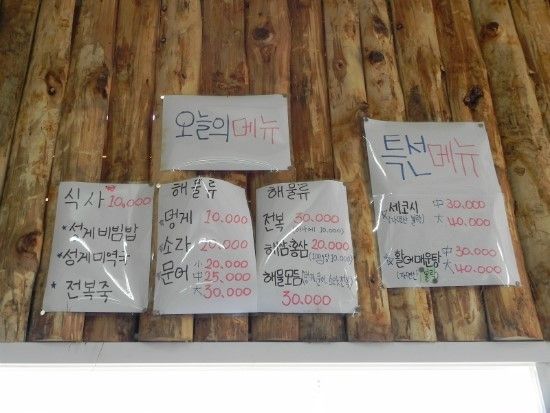 오늘의 메뉴
식사 10,000
*성게비빔밥
*성게미역국
*전복죽
해물류
*멍게 10.000
소라 20.000
문어 小 20.000
中 25.000
大 30.000
해물류
전복 30.000
해삼홍삼 20.000
해물모듬
30.000
특선메뉴
세코시 中 30.000
大 40.000
*활어매운탕 中 30.000
大 40.000